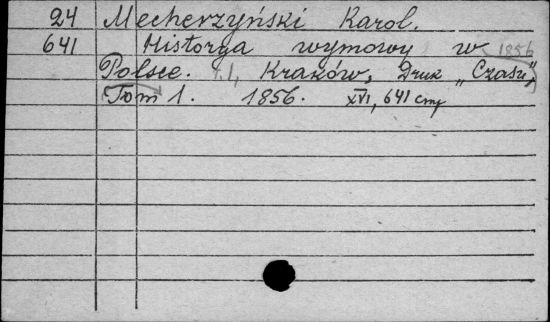 24 Mecherzyński Karol.
641 Historya wymowy w 1856
Polsce. t.I, Kraków, Druk „Czasu”,
Tom 1. 1856. XVI, 641